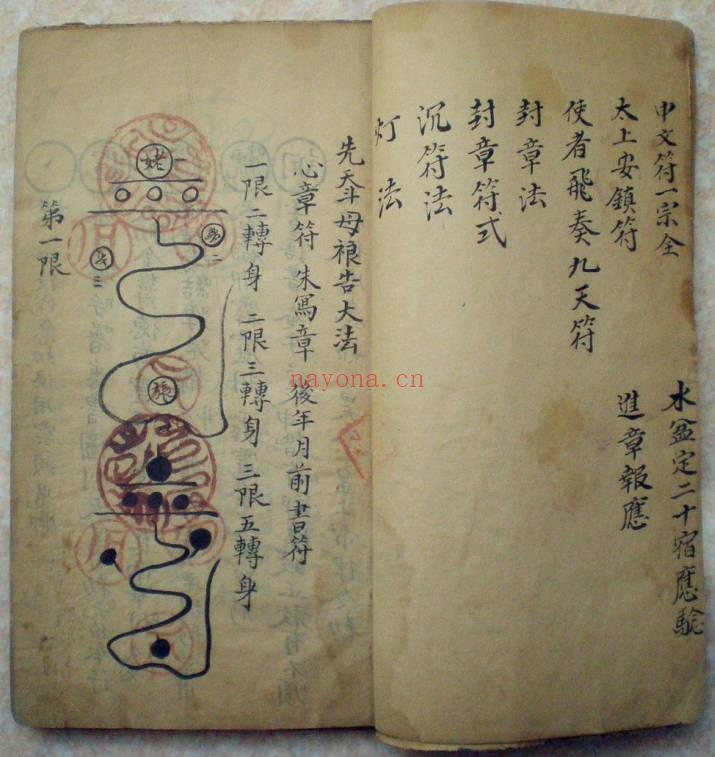 申文符一宗全
太上安鎮符
使者飛奏九天符
封章法
封章符式
沉符法
灯法
水盆定二十宿應驗
進章報應
先天斗母禳告大法
心章符 朱寫章 後年月前書符
一限二轉身 二限三轉身 三限五轉身
姥一
二
三
張
第一限
nayona.cn